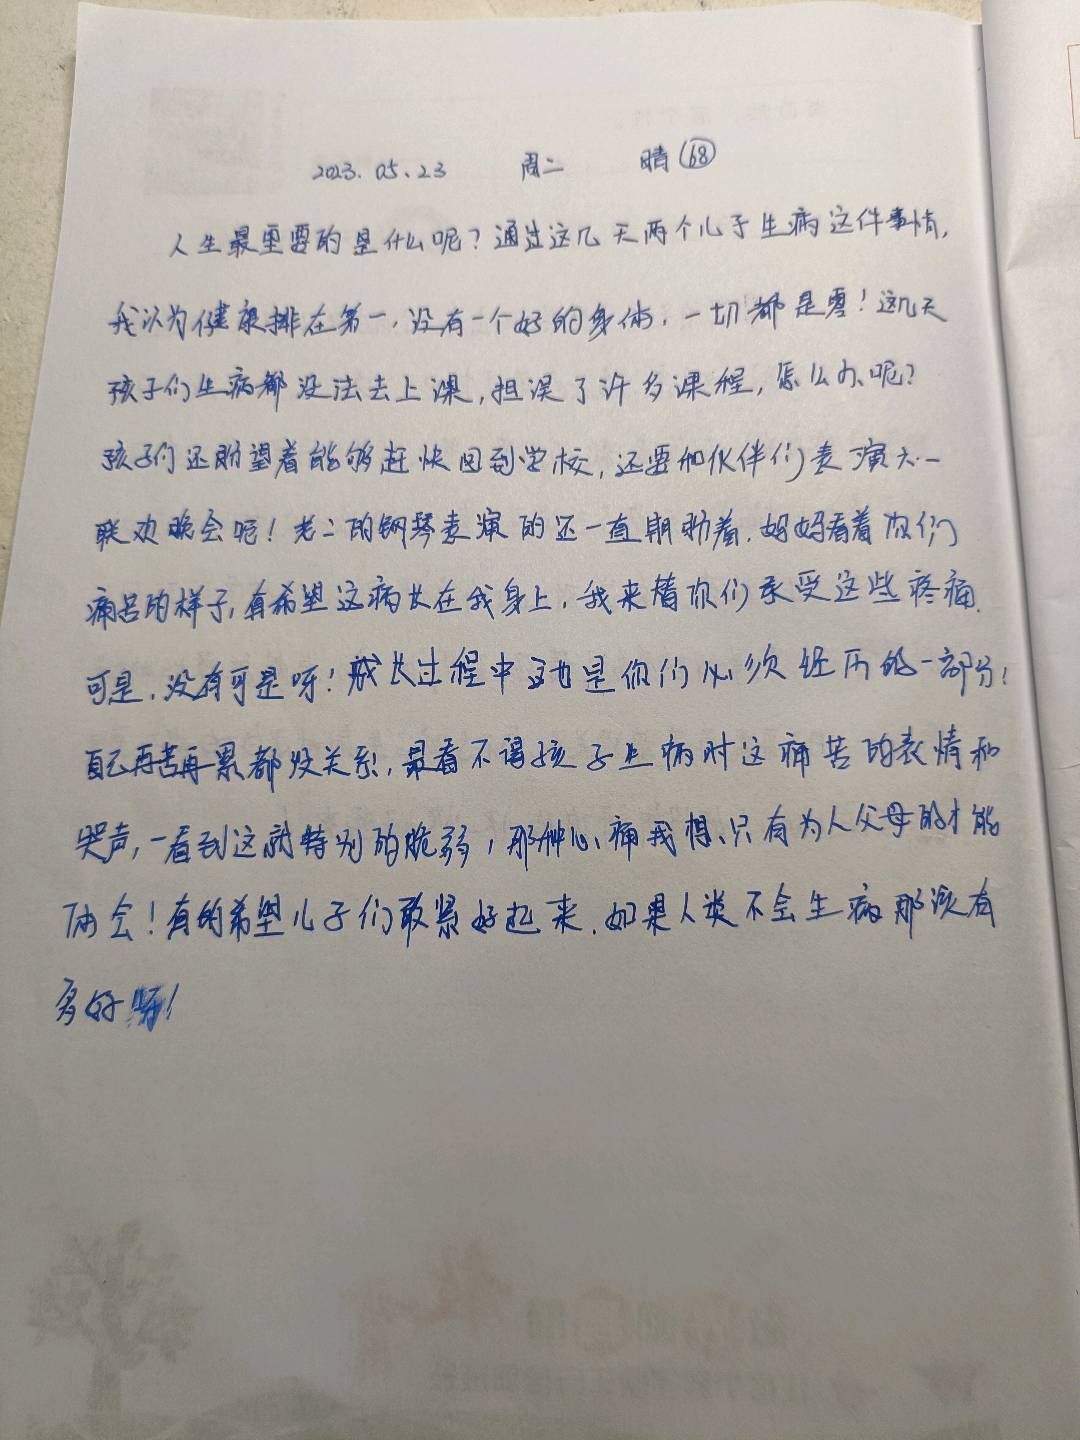 2023.05.23 周二 晴 68
人生最重要的是什么呢？通过这几天两个儿子生病这件事情，
我认为健康排在第一，没有一个好的身体，一切都是零！这几天
孩子们生病都没法去上课，担误了许多课程，怎么办呢？
孩子们还盼望着能够赶快回到学校，还要和伙伴们表演六一
联欢晚会呢！老二的钢琴表演的还一直期盼着，妈妈看着你们
痛苦的样子，真希望这病长在我身上，我来替你们承受这些疼痛，
可是，没有可是呀！成长过程中这也是你们必须经历的一部分！
自己再苦再累都没关系，最看不得孩子生病时这痛苦的表情和
哭声，一看到这就特别的脆弱，那种心痛我想，只有为人父母的才能
体会！真的希望儿子们敢紧好起来，如果人类不会生病那该有
多好呀！